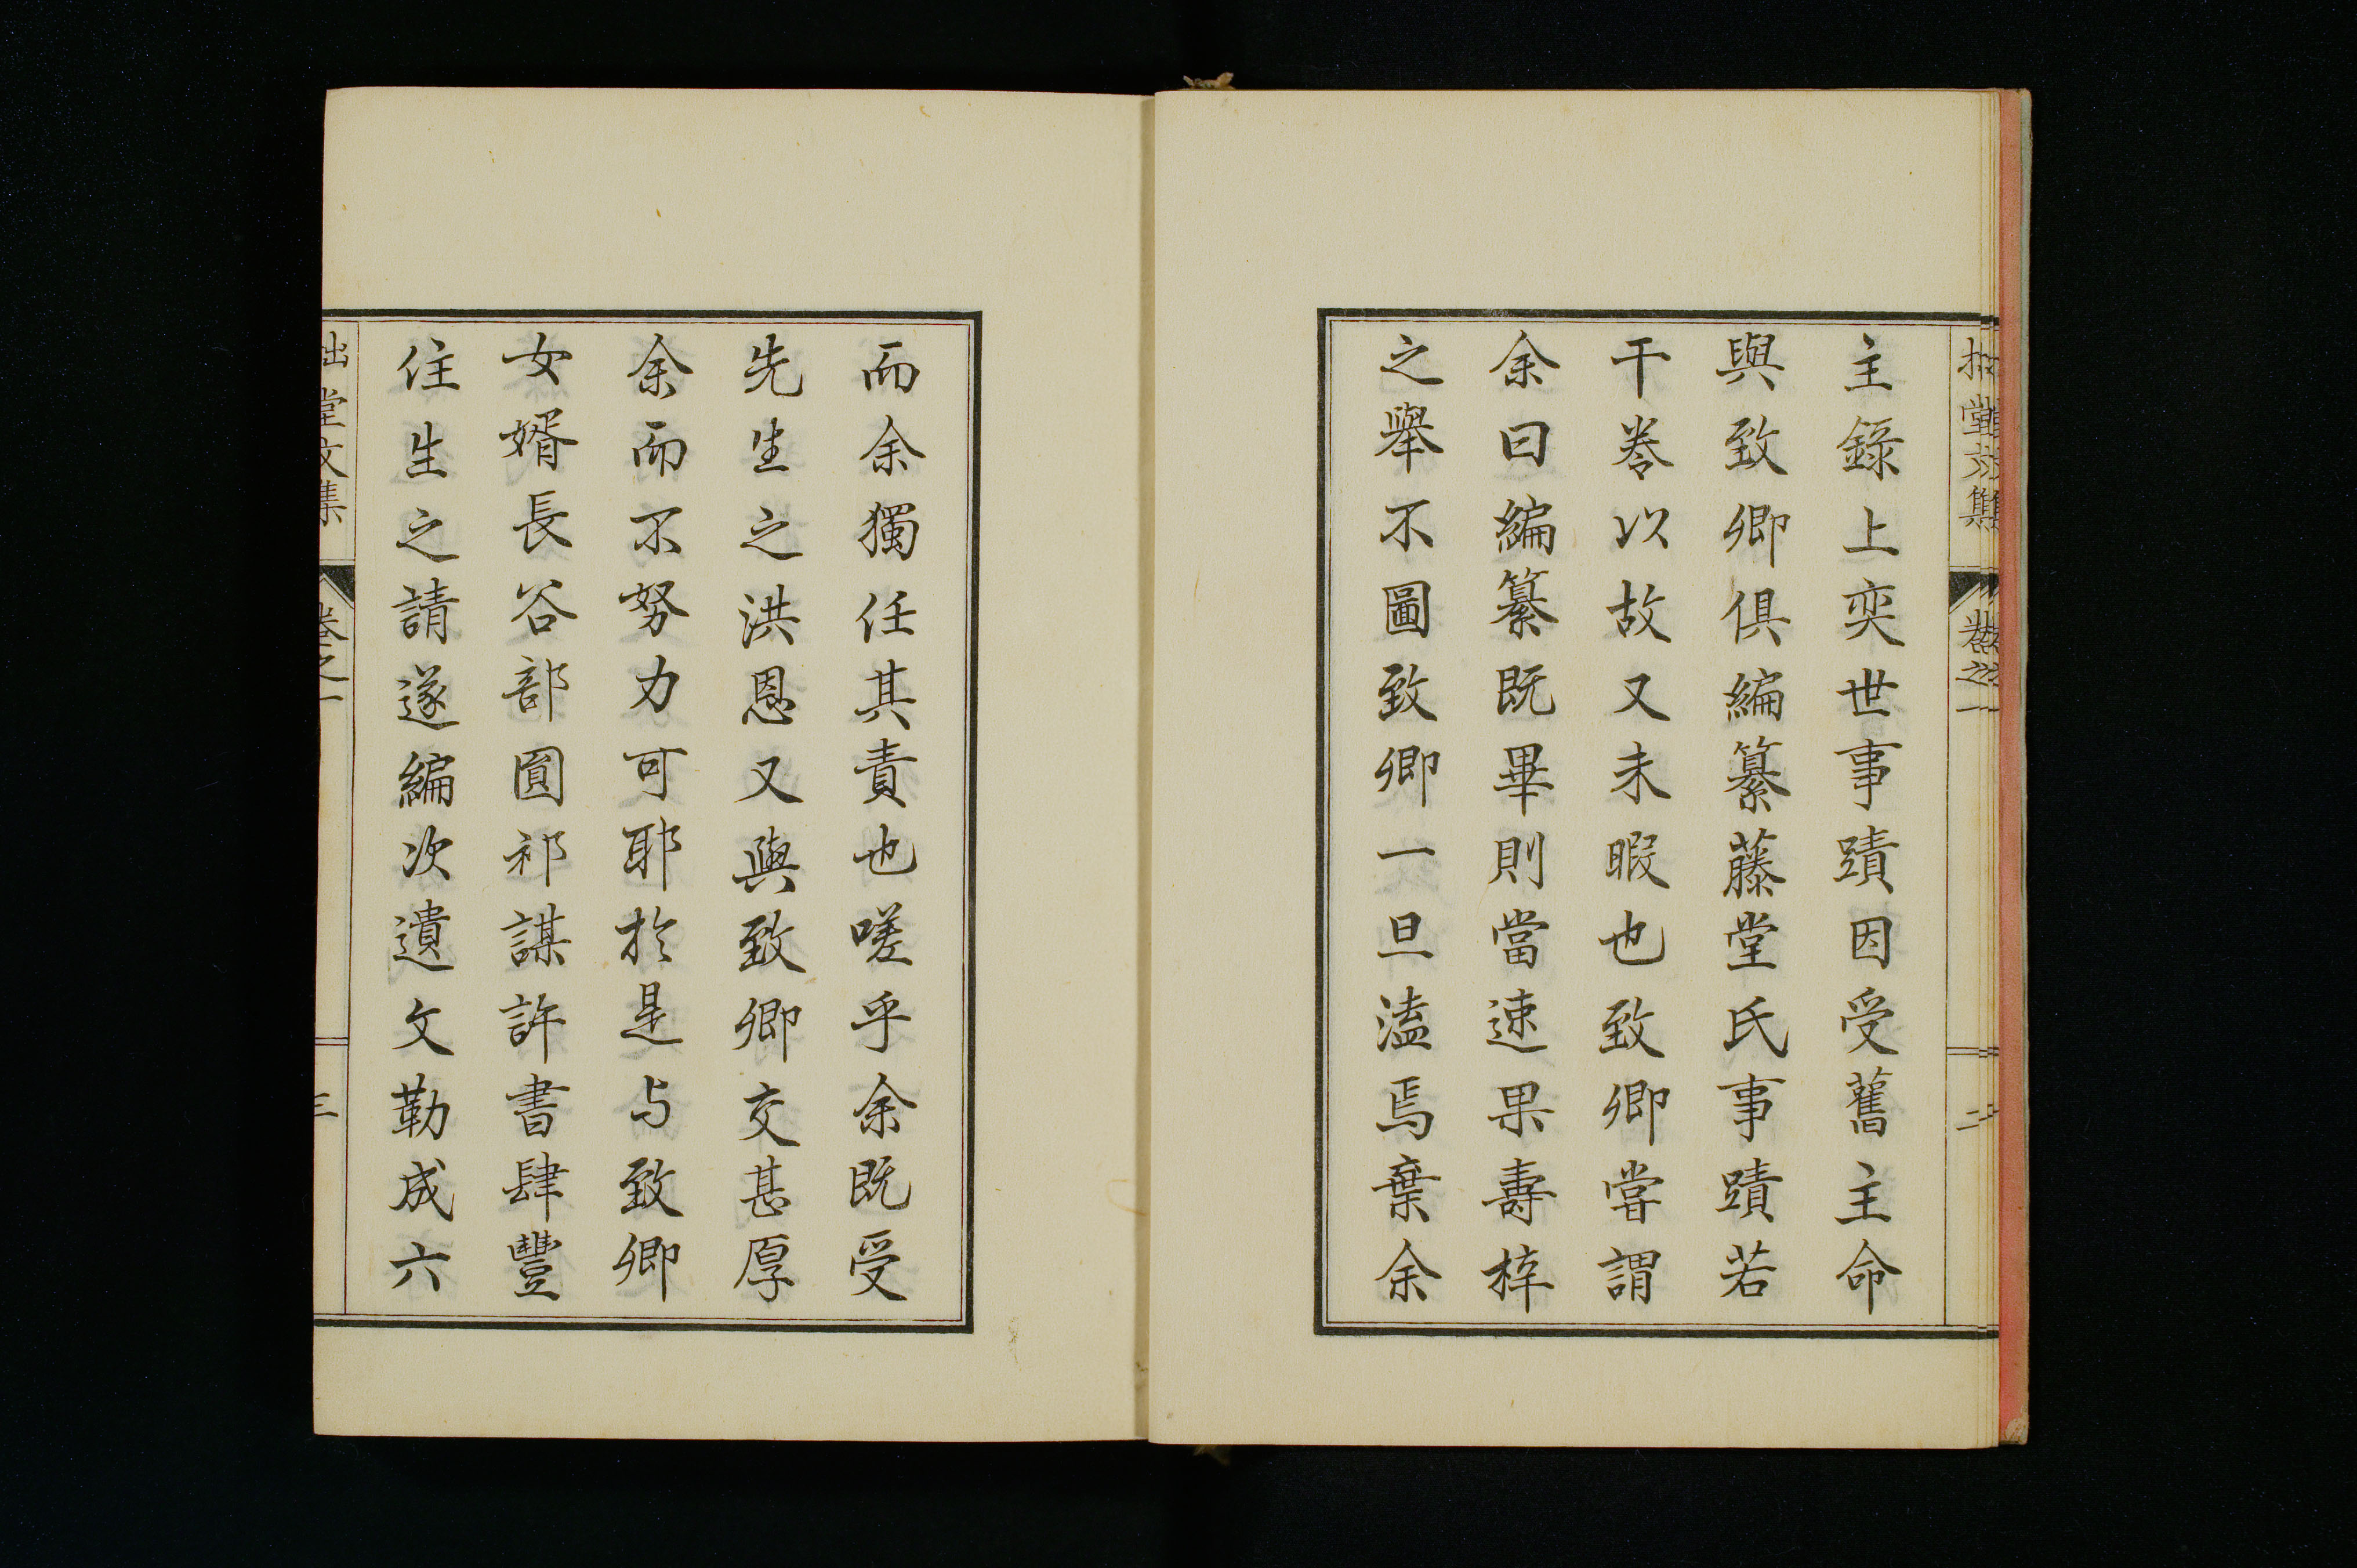 主錄上奕世事蹟因受舊主命
與致卿俱編纂藤堂氏事蹟若
干卷以故又未暇也致卿嘗謂
余曰編纂既畢則當速果壽梓
之舉不圖致卿一旦溘焉棄余
而余獨任其責也嗟乎余既受
先生之洪恩又與致卿交甚厚
余而不努力可耶於是与致卿
女婿長谷部圓祁謀許書肆豐
住生之請遂編次遺文勒成六
拙堂文集
卷之一
三